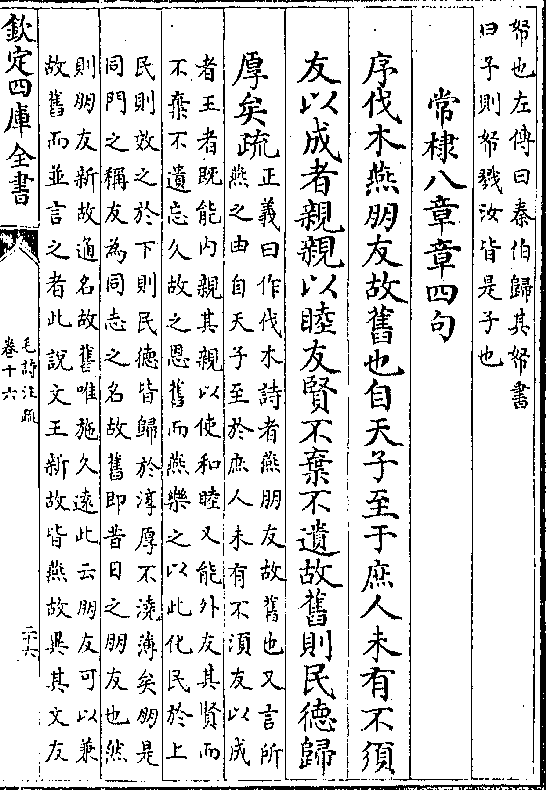 帑也左傳曰秦伯歸其帑書
曰予則帑戮汝皆是子也
常棣八章章四句
序伐木燕朋友故舊也自天子至于庶人未有不須
友以成者親親以睦友賢不棄不遺故舊則民德歸
厚矣疏
正義曰作伐木詩者燕朋友故舊也又言所
燕之由自天子至於庶人未有不須友以成
者王者既能内親其親以使和睦又能外友其賢而
不棄不遺忘久故之恩舊而燕樂之以此化民於上
民則效之於下則民德皆歸於淳厚不澆薄矣朋是
同門之稱友為同志之名故舊即昔日之朋友也然
則朋友新故通名故舊唯施久遠此云朋友可以兼
故舊而並言之者此說文王新故皆燕故異其文友
欽定四庫全書
毛詩注疏
卷十六
二十六